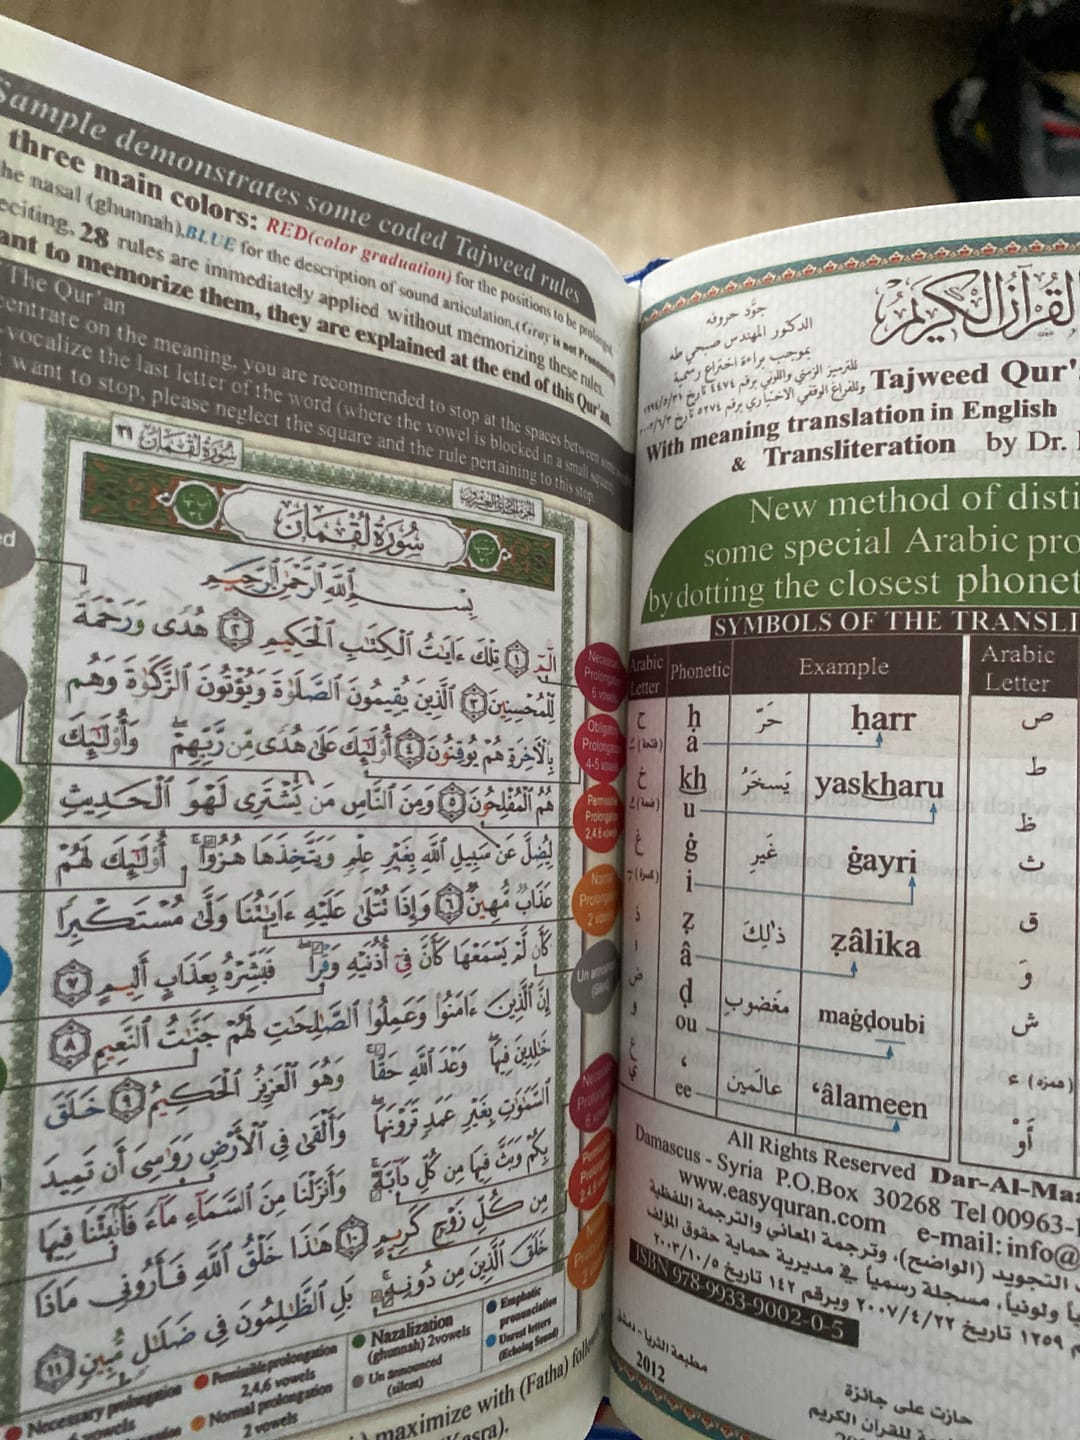 Sample demonstrates some coded Tajweed rules
three main colors: RED(color graduation) for the positions to be prolonged,
he nasal (ghunnah),BLUE for the description of sound articulation,(Gray is not Pronounced)
eciting, 28 rules are immediately applied without memorizing these rules.
ant to memorize them, they are explained at the end of this Qur'an.
The Qur'an
centrate on the meaning, you are recommended to stop at the spaces between
vocalize the last letter of the word (where the vowel is blocked in a small square)
want to stop, please neglect the square and the rule pertaining to this stop.
سُورَةُ لُقۡمَان ٣١
سُورَةُ لُقۡمَان
بِسۡمِ ٱللَّهِ ٱلرَّحۡمَٰنِ ٱلرَّحِيمِ
الٓمٓ ١ تِلۡكَ ءَايَٰتُ ٱلۡكِتَٰبِ ٱلۡحَكِيمِ ٢ هُدٗى وَرَحۡمَةٗ
لِّلۡمُحۡسِنِينَ ٣ ٱلَّذِينَ يُقِيمُونَ ٱلصَّلَوٰةَ وَيُؤۡتُونَ ٱلزَّكَوٰةَ وَهُم
بِٱلۡأٓخِرَةِ هُمۡ يُوقِنُونَ ٤ أُوْلَٰٓئِكَ عَلَىٰ هُدٗى مِّن رَّبِّهِمۡۖ وَأُوْلَٰٓئِكَ
هُمُ ٱلۡمُفۡلِحُونَ ٥ وَمِنَ ٱلنَّاسِ مَن يَشۡتَرِي لَهۡوَ ٱلۡحَدِيثِ
لِيُضِلَّ عَن سَبِيلِ ٱللَّهِ بِغَيۡرِ عِلۡمٖ وَيَتَّخِذَهَا هُزُوًاۚ أُوْلَٰٓئِكَ لَهُمۡ
عَذَابٞ مُّهِينٞ ٦ وَإِذَا تُتۡلَىٰ عَلَيۡهِ ءَايَٰتُنَا وَلَّىٰ مُسۡتَكۡبِرٗا
كَأَن لَّمۡ يَسۡمَعۡهَا كَأَنَّ فِيٓ أُذُنَيۡهِ وَقۡرٗاۖ فَبَشِّرۡهُ بِعَذَابٍ أَلِيمٍ ٧
إِنَّ ٱلَّذِينَ ءَامَنُواْ وَعَمِلُواْ ٱلصَّٰلِحَٰتِ لَهُمۡ جَنَّٰتُ ٱلنَّعِيمِ ٨
خَٰلِدِينَ فِيهَاۖ وَعۡدَ ٱللَّهِ حَقّٗاۚ وَهُوَ ٱلۡعَزِيزُ ٱلۡحَكِيمُ ٩ خَلَقَ
ٱلسَّمَٰوَٰتِ بِغَيۡرِ عَمَدٖ تَرَوۡنَهَاۖ وَأَلۡقَىٰ فِي ٱلۡأَرۡضِ رَوَٰسِيَ أَن تَمِيدَ
بِكُمۡ وَبَثَّ فِيهَا مِن كُلِّ دَآبَّةٖۚ وَأَنزَلۡنَا مِنَ ٱلسَّمَآءِ مَآءٗ فَأَنۢبَتۡنَا فِيهَا
مِن كُلِّ زَوۡجٖ كَرِيمٍ ١٠ هَٰذَا خَلۡقُ ٱللَّهِ فَأَرُونِي مَاذَا
خَلَقَ ٱلَّذِينَ مِن دُونِهِۦۚ بَلِ ٱلظَّٰلِمُونَ فِي ضَلَٰلٖ مُّبِينٖ ١١
Necessary Prolongation 6 vowels
Obligatory Prolongation 4-5 vowels
Permissible Prolongation 2,4,6 vowels
Normal Prolongation 2 vowels
Un announced (Silent)
Necessary Prolongation 6 vowels
Permissible Prolongation 2,4,6 vowels
Normal Prolongation 2 vowels
Necessary prolongation
6 vowels
Permissible prolongation
2,4,6 vowels
Normal prolongation
2 vowels
Nazalization
(ghunnah) 2vowels
Un announced
(silent)
Emphatic
pronunciation
Unrest letters
(Echoing Sound)
maximize with (Fatha)
(Kasra).
القرآن الكريم
جوّد حروفه
الدكتور المهندس صبحي طه
بموجب براءة اختراع رسمية
Tajweed Qur'
With meaning translation in English
& Transliteration by Dr.
New method of disti
some special Arabic pro
by dotting the closest phonet
SYMBOLS OF THE TRANSLI
Arabic Letter Phonetic Example Arabic Letter
ح ḥ حَرّ ḥarr ص
(فتحة) a ط
خ kh يَسخَرُ yaskharu ظ
(ضمة) u ث
غ ġ غَيرِ ġayri ق
(كسرة) i
ذ ẓ ذٰلِكَ ẓâlika وَ
ا â
ض ḍ مَغضُوبِ maġḍoubi ش
و ou
ع ‘ عالَمين ‘âlameen ء (همزة)
ي ee أَوْ
All Rights Reserved Dar-Al-Ma
Damascus - Syria P.O.Box 30268 Tel 00963-1
www.easyquran.com e-mail: info@
التجويد (الواضح)، وترجمة المعاني والترجمة اللفظية
ولونياً، مسجلة رسمياً في مديرية حماية حقوق المؤلف
١٢٥٩ تاريخ ٢٠٠٧/٤/٢٢ وبرقم ١٤٢ تاريخ ٢٠٠٣/١٠/٥
ISBN 978-9933-9002-0-5
مطبعة الثريا - دمشق
2012
حازت على جائزة
للقرآن الكريم